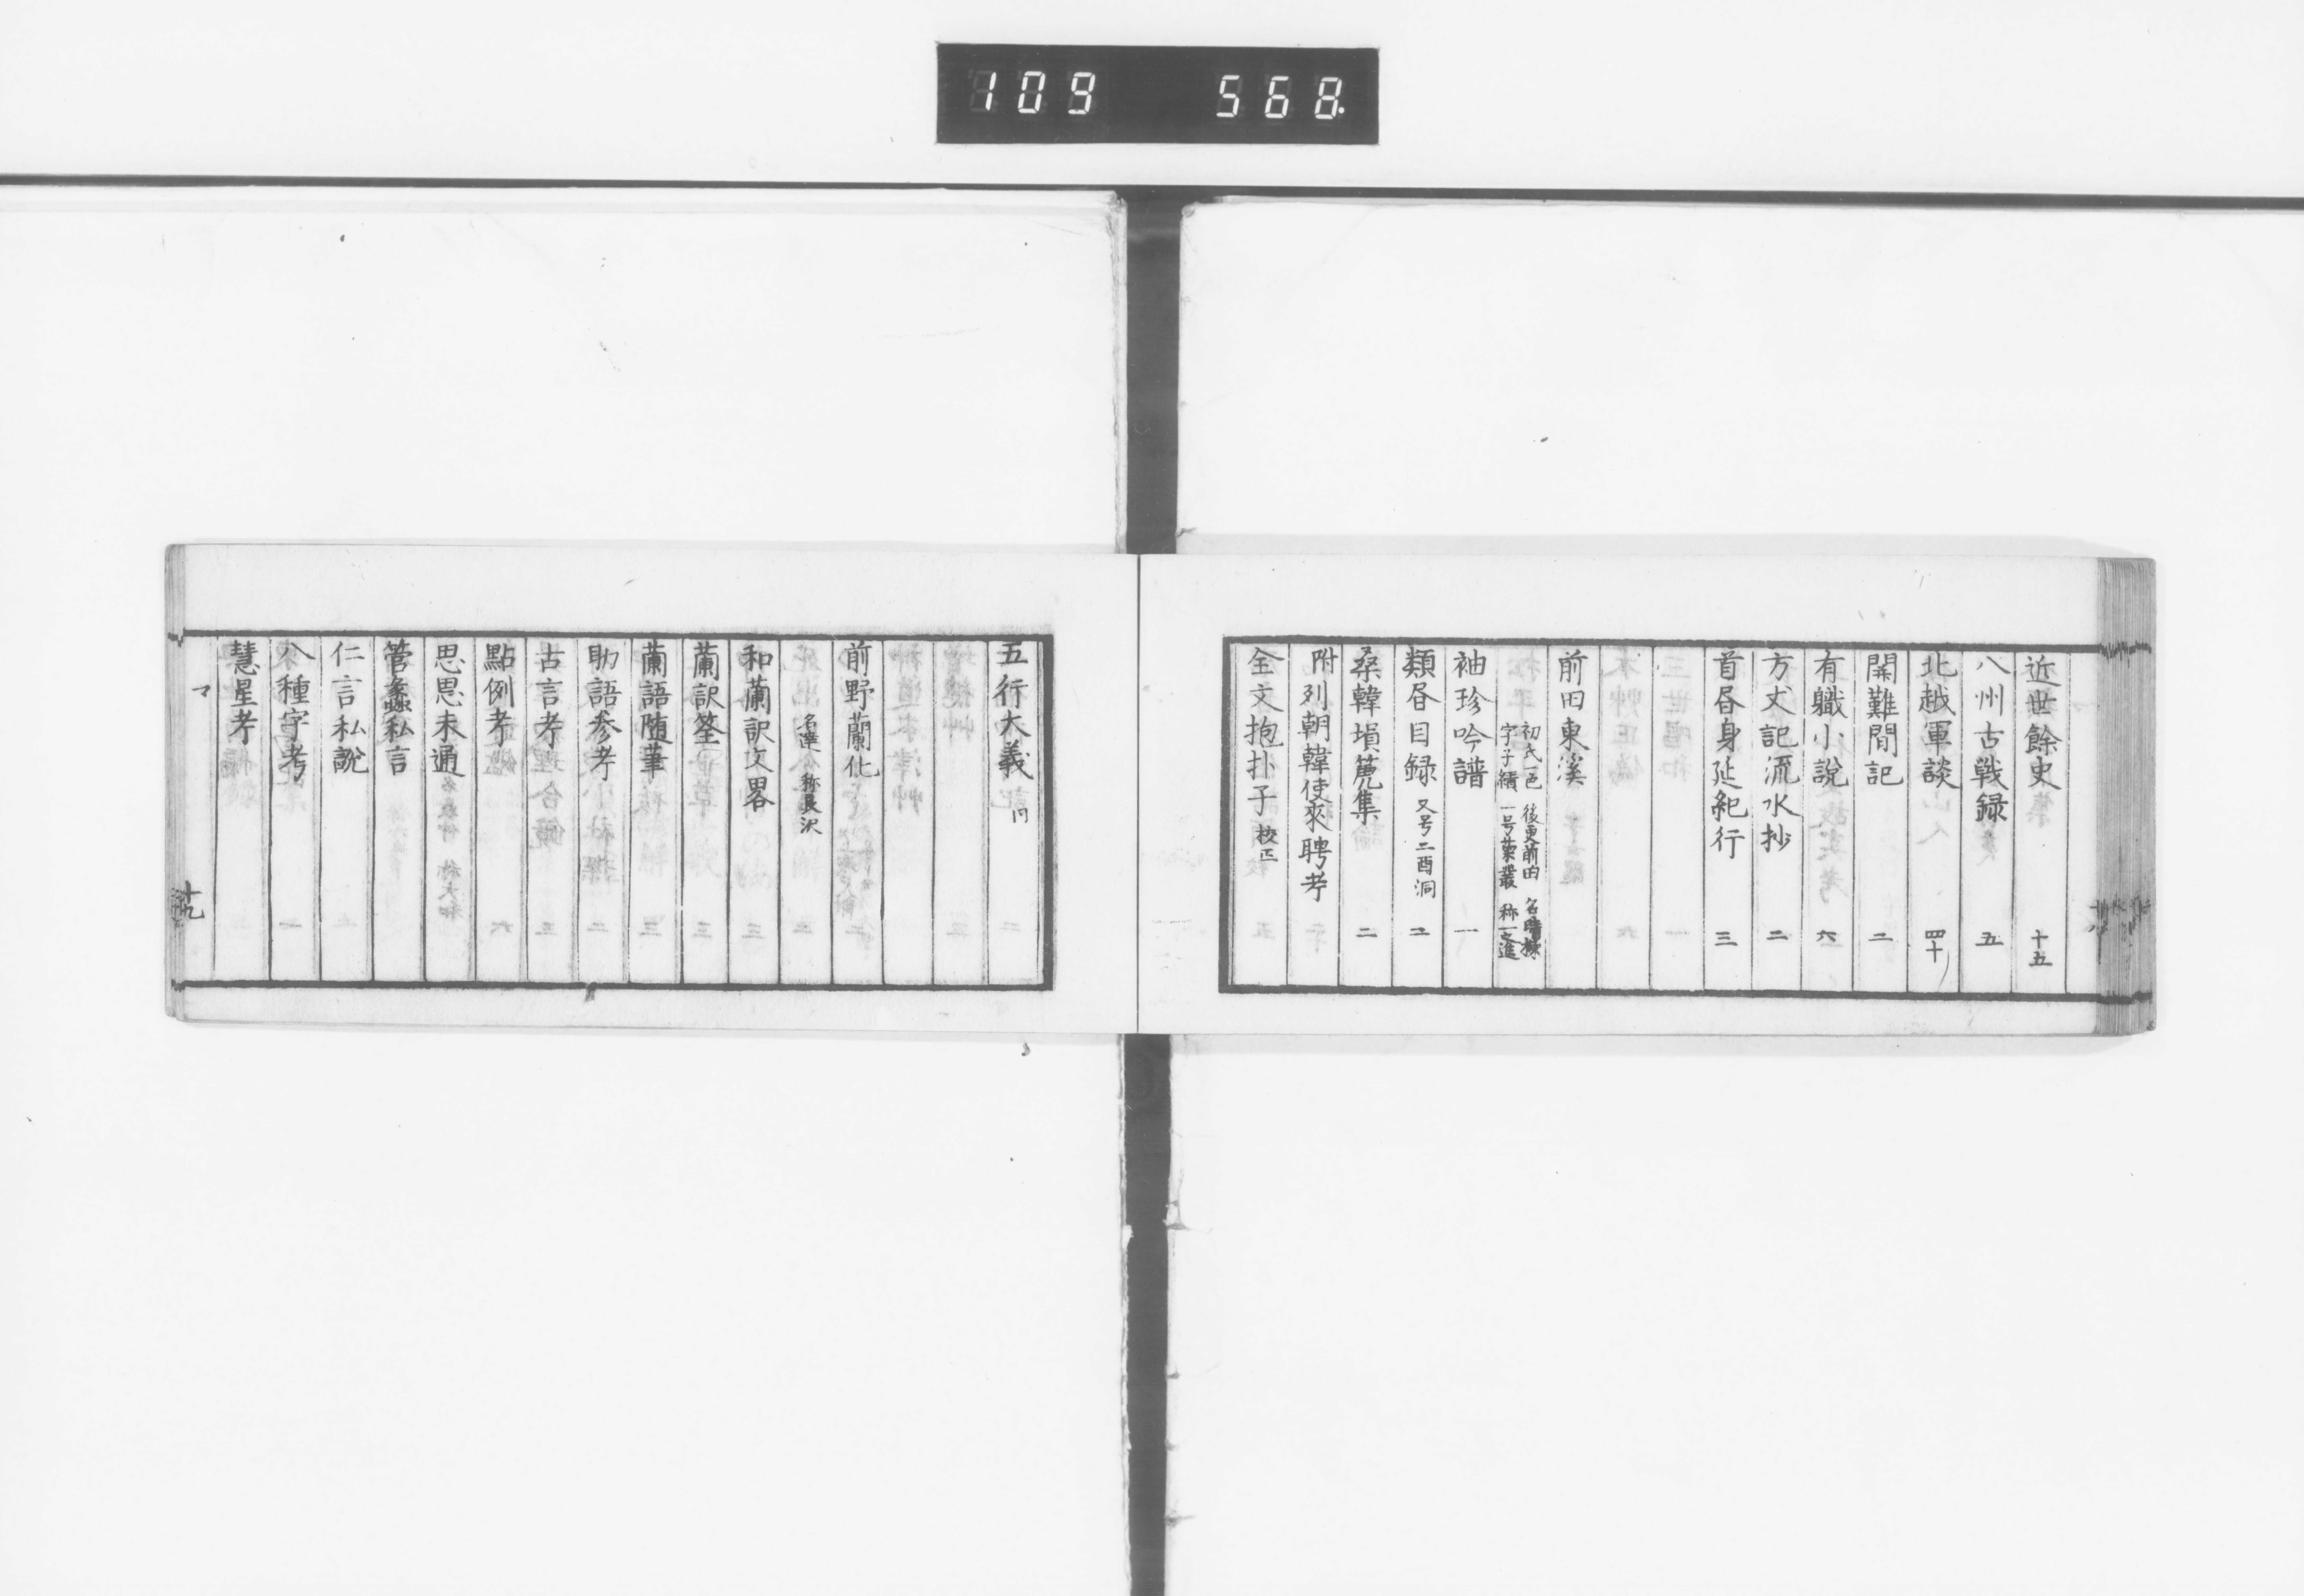 109 568
近世餘史 十五
八州古戦録 五
北越軍談 四十
関難間記 二
有職小説 六
方丈記流水抄 二
首書身延紀行 三
前田東溪
初氏一色 後更前田 名時棟
字子績 一号菊叢 称一之進
袖珍吟譜 一
類書目録 又号二酉洞 二
桑韓塤篪集 二
附列朝韓使來聘考
全文抱扑子 校正
五行大義 同
前野蘭化
名達 称良沢
和蘭訳文畧
蘭訳筌
蘭語随筆
助語参考
古言考
點例考
思思未通
管蠡私言
仁言私説
八種字考
慧星考
マ
十九